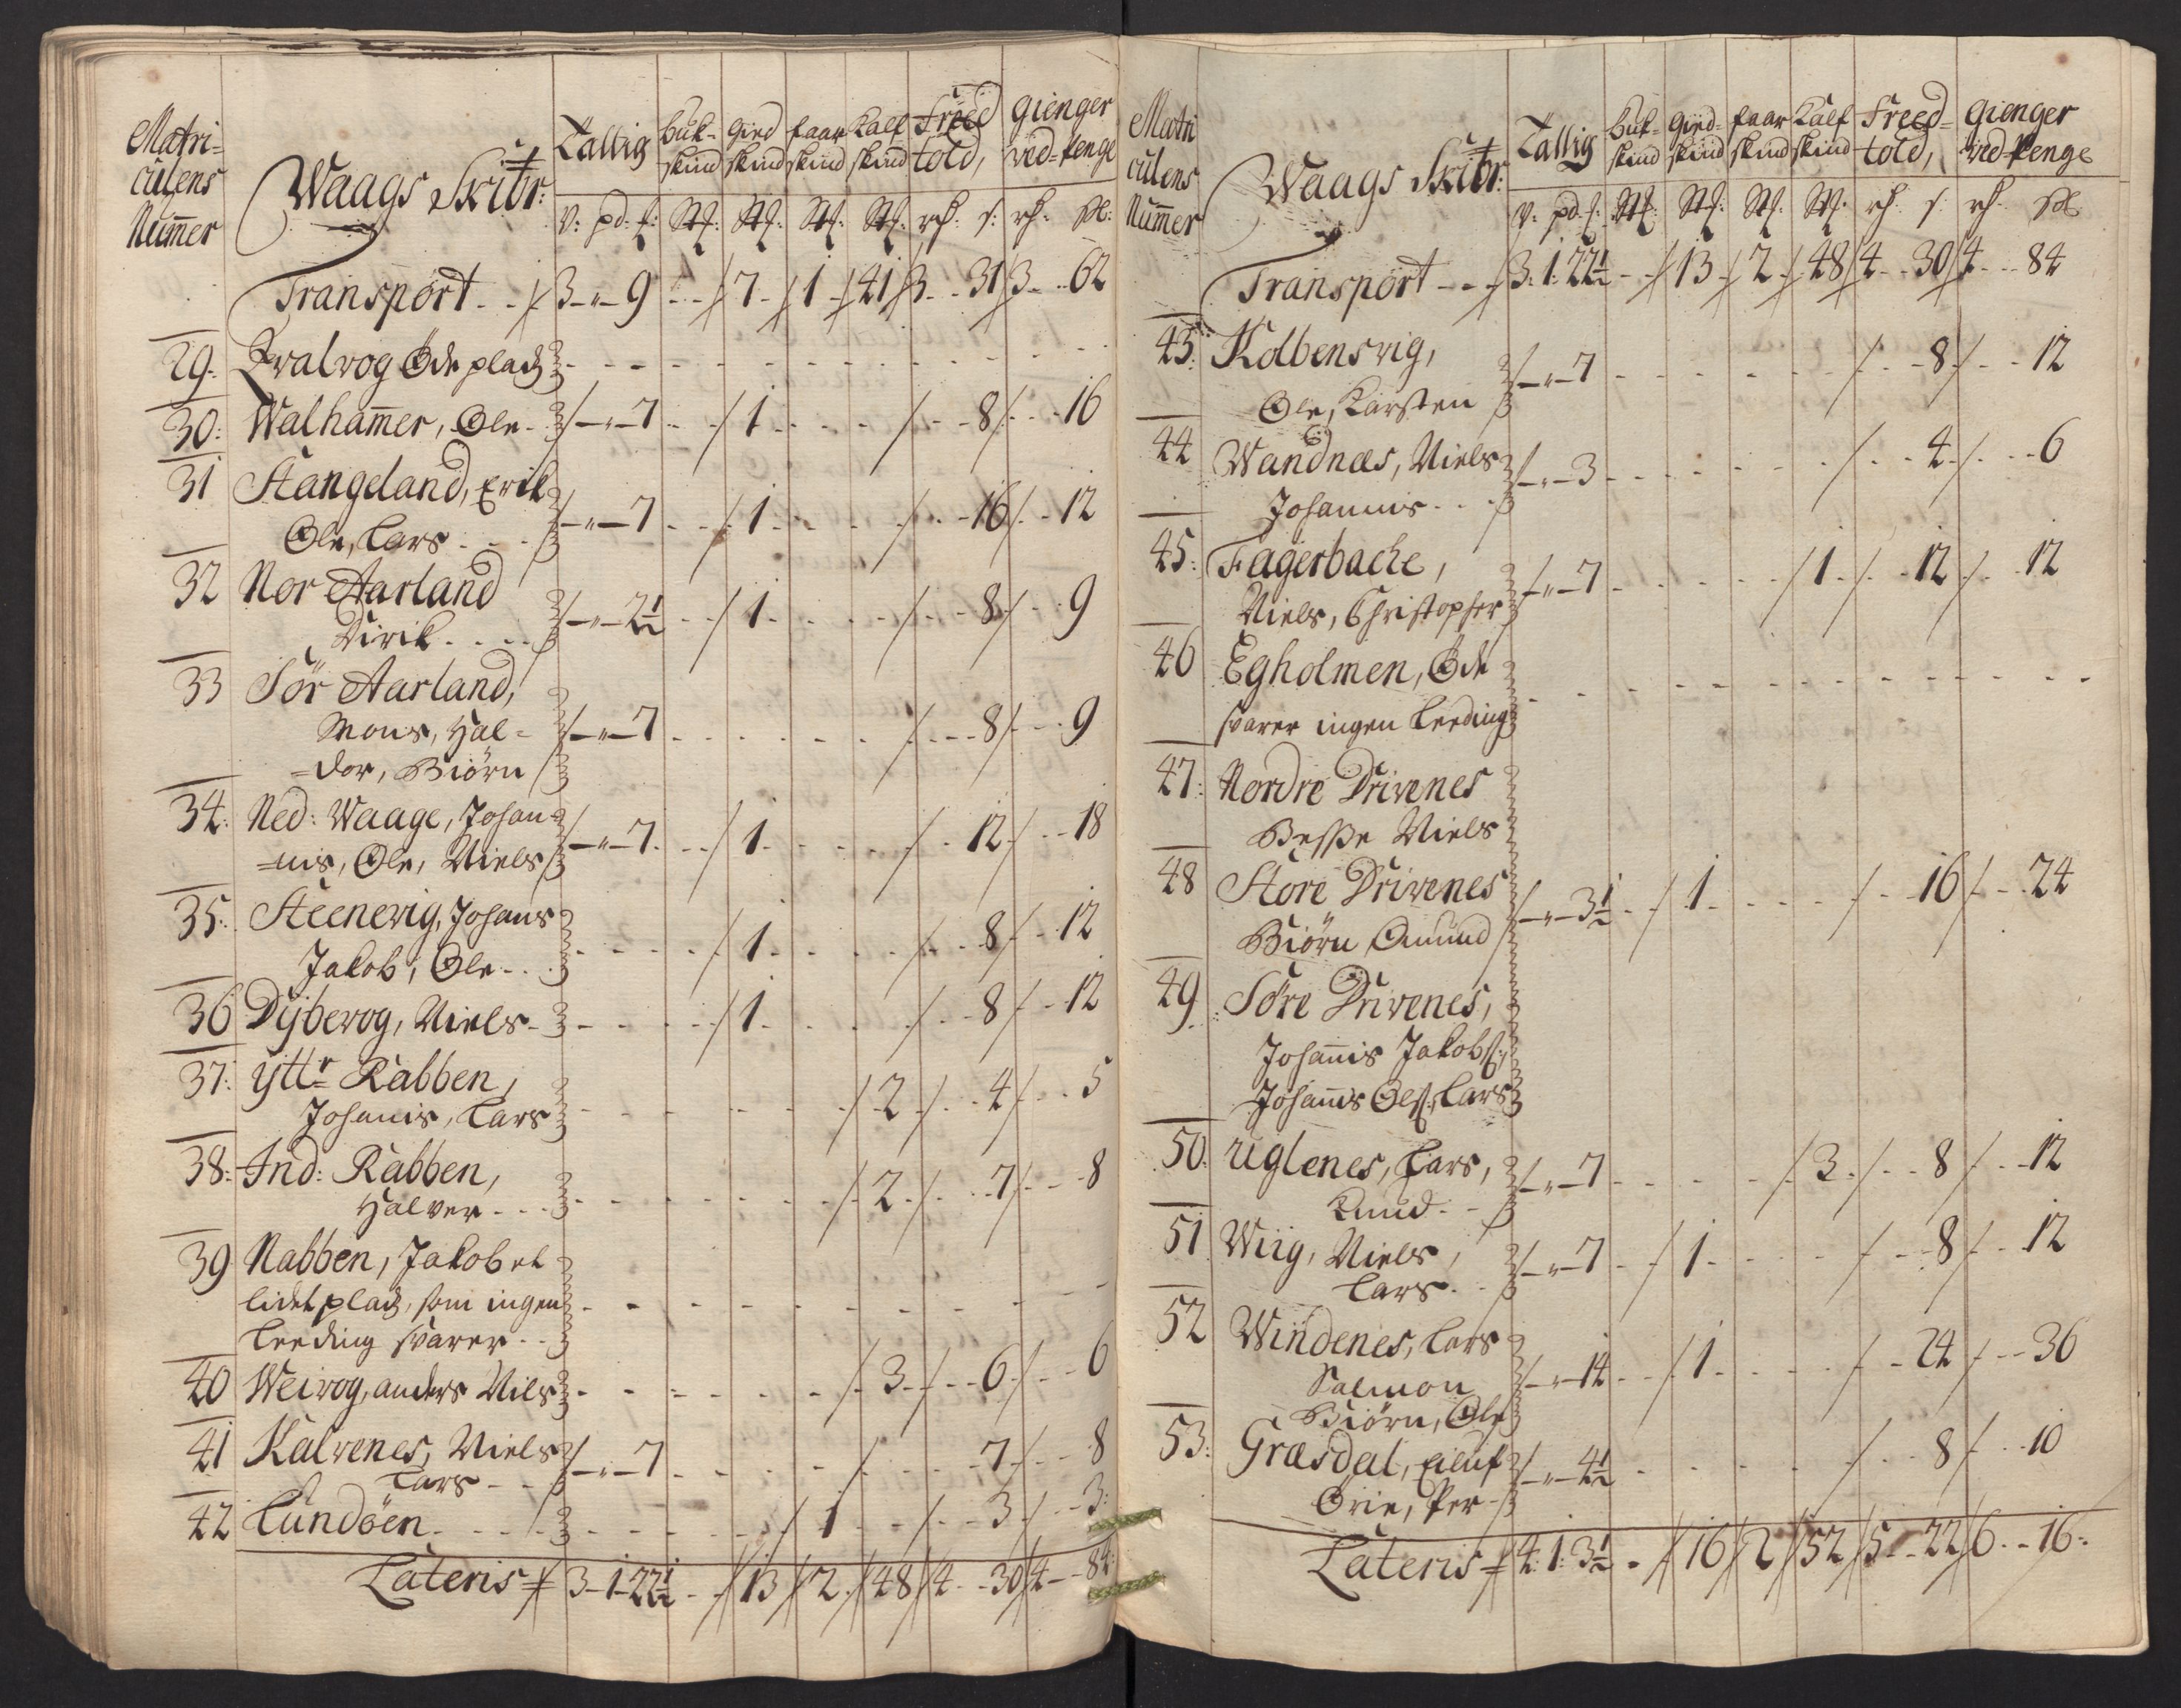 Matri=
culens
Num̄er
Waags Skibr:
Tallig
buk=
skind
gied
skind
faar
skind
kalf
skind
Freed
told,
gienger
ved=penge
v: pd: f:
rf: s: rf:
Transport - - 3 - " - 9 - - 7 - 1 - 41 3 - - 31 3 - - 62
29. Qvalvog Øde plads
30: Walham̄er, Ole - - " - 7 - - 1 - - - - 8 - - 16
31 Stangeland, Erik
Ole, Lars - - - " - 7 - - 1 - - - 16 - - 12
32 Nor Aarland
Dirik - - - - " - 2½ - - 1 - - - 8 - - 9
33 Sör Aarland,
Mons, Hal=
=dor, Biørn - " - 7 - - - - 8 - - 9
34: Ned: Waage, Johan=
=nis, Ole, Niels - " - 7 - - 1 - - - 12 - - 18
35: Steenevig, Johans
Jakob, Ole - - - - 1 - - - 8 - - 12
36 Dybevog, Niels - - - - 1 - - - 8 - - 12
37: Yttr Rabben,
Johanis, Lars - - - - 2 - - 4 - - 5
38: Ind: Rabben,
Halver - - - - 2 - - 7 - - 8
39 Nabben, Jakob et
lidet plads, som ingen
Leeding svarer - -
40 Weivog, anders Nils - - - - 3 - - 6 - - 6
41 Kalvenes, Niels
Lars - - - " - 7 - - - - 7 - - 8
42 Lundöen - - - - 1 - - 3 - - 3:
Lateris 3 - 1 - 22½ - - 13 2 - 48 4 - - 30 4 - - 84:
Matri
culens
Num̄er
Waags Skibr:
Tallig
buk=
skind
gied=
skind
faar
skind
Kalf
skind
Freed=
told,
gienger
ved=penge
v: pd: f:
rf: s: rf:
Transport - - - 3. 1. 22½ - - 13 - 2 - 48 4 - - 30 4 - - 84
43: Kolbensvig,
Ole, Karsten - " - 7 - - - - 8 - - 12
44 Wandnæs, Niels
Johannis - - - " - 3 - - - - 4 - - 6
45: Fagerbache,
Niels, Christopher - " - 7 - - - - 1 - - 12 - - 12
46 Egholmen, Øde
svarer ingen Leeding
47: Nordre Drivenes
Niels
48 Store Drivenes
Biørn Omund - " - 3½ - - 1 - - - 16 - - 24
49 Söre Drivenes,
Johannis Jakobs:
Johannis Ols:, Lars
50: Uglenes, Lars,
Knud - - - " - 7 - - - - 3 - - 8 - - 12
51 Wiig, Niels,
Lars - - - " - 7 - - 1 - - - 8 - - 12
52 Windenes, Lars
Salmon
Biørn, Ole - " - 14 - - 1 - - - 24 - - 36
53: Græsdal, Eiluf
Per - - " - 4½ - - - - 8 - - 10
Lateris 4. 1. 3½ - 16 2 52 5 - - 22 6 - - 16: